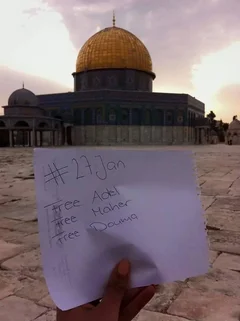 #27 Jan
Free Adel
Free Maher
Free Douma